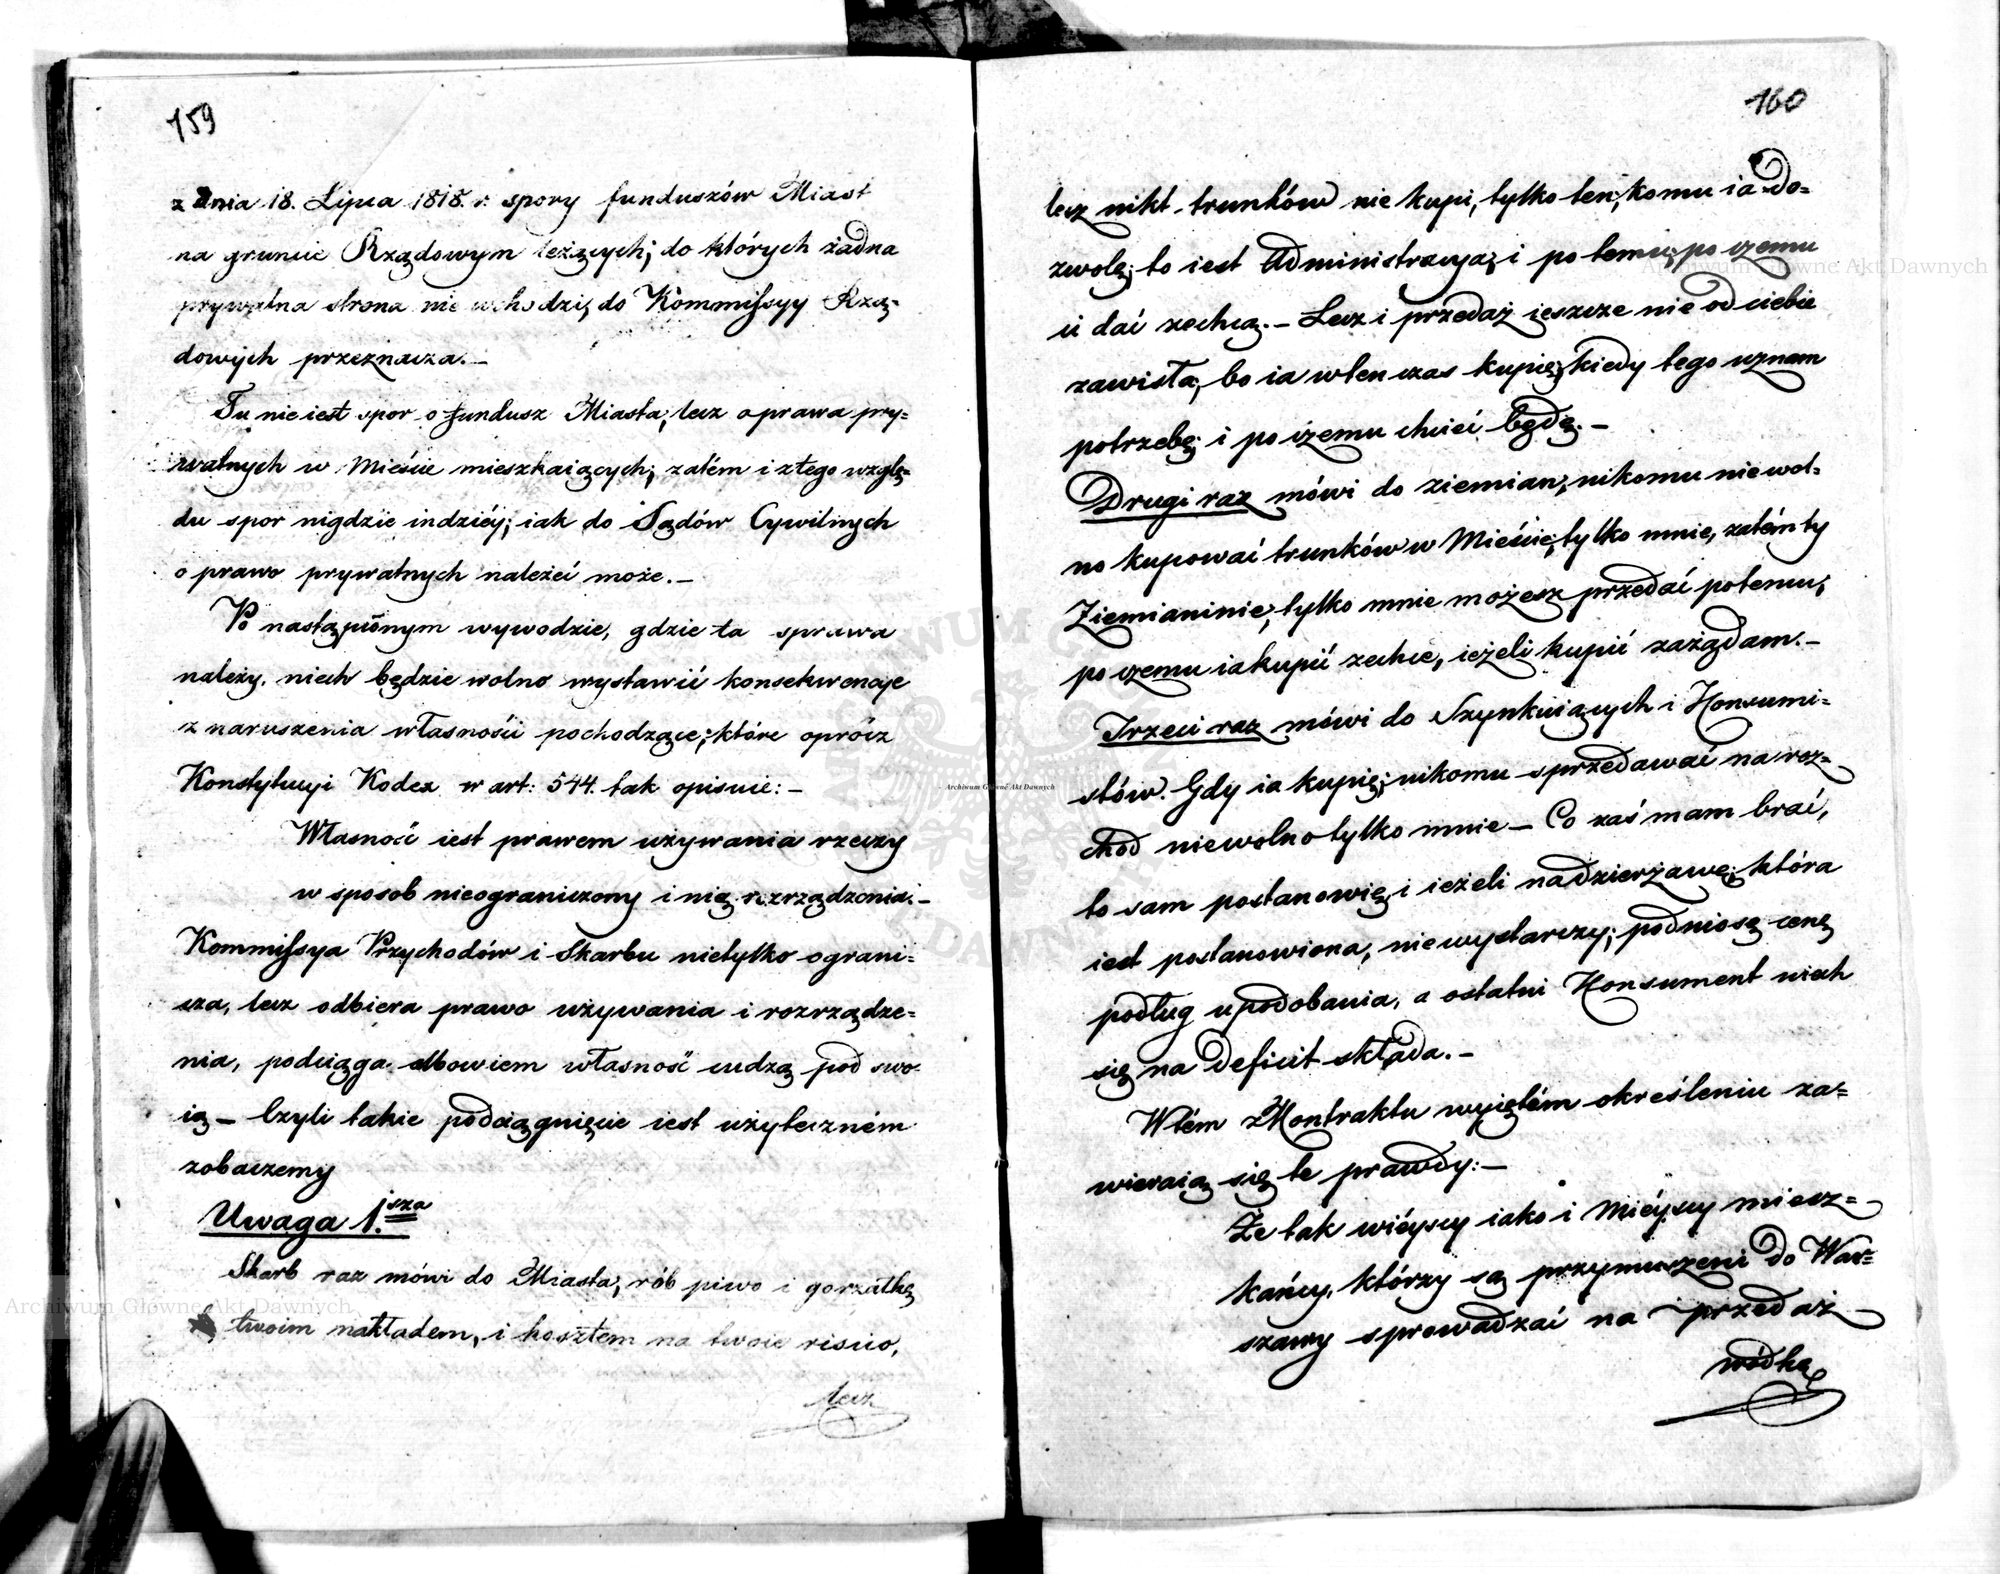 159
z dnia 18. Lipca 1818. r. spory funduszów Miast
na gruncie Rządowym leżących; do których żadna
prywatna strona nie wchodzi, do Kommissyy Rzą=
dowych przeznacza.—
Tu nie iest spor o fundusz Miasta, lecz o prawa pry=
watnych w Mieście mieszkaiących; zatém i z tego wzglę=
du spor nigdzie indziéy; iak do Sądów Cywilnych
o prawo prywatnych należeć może.—
Po nastąpionym wywodzie, gdzie ta sprawa
należy, niech będzie wolno wystawić konsekwencye
z naruszenia własności pochodzące; które oprócz
Konstytucyi Kodex w art: 544. tak opisuie:—
Własność iest prawem używania rzeczy
w sposob nieograniczony i nią rozrządzenia.—
Kommissya Przychodów i Skarbu nietylko ograni=
cza, lecz odbiera prawo używania i rozrządze=
nia, podciąga albowiem własność cudzą pod swo
ią— Czyli takie podciągnięcie iest użyteczném
zobaczemy
Uwaga 1.sza
Skarb raz mówi do Miasta, rób piwo i gorzałkę
twoim nakładem, i kosztem na twoie risico,
lecz
160
lecz nikt trunków nie kupi, tylko ten, komu ia do=
zwolę; to iest Administracya; i po temu, po czemu
ci dać zechcą.— Lecz i przedaż ieszcze nie od ciebie
zawisła, bo ia wtenczas kupię, kiedy tego uznam
potrzebę i po czemu chcieć będę.—
Drugi raz mówi do ziemian, nikomu niewol=
no kupować trunków w Mieście, tylko mnie, zatém ty
Ziemianinie, tylko mnie możesz przedać potemu,
po czemu ia kupić zechce, ieżeli kupić zażądam.—
Trzeci raz mówi do Szynkuiących i Konsumi=
stów. Gdy ia kupię, nikomu sprzedawać na roz=
chod niewolno tylko mnie— Co zaś mam brać,
to sam postanowię, i ieżeli na dzierżawę, która
iest postanowiona, niewystarczy; podniosę cenę
podług upodobania, a ostatni Konsument niech
się na deficit składa.—
W tém z Kontraktu wyiętém określeniu za=
wieraią się te prawdy:—
Że tak wiéyscy iako i Miéyscy miesz=
kańcy, którzy są przymuszeni do War=
szawy sprowadzać na przedaż
wódkę
Archiwum Główne Akt Dawnych
Archiwum Główne Akt Dawnych
Archiwum Główne Akt Dawnych